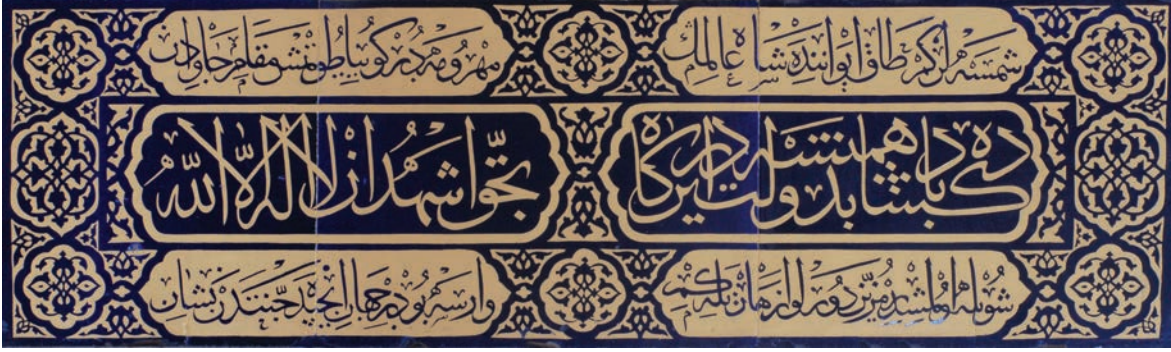 شمسه لر كم طاق ایواننده شاه عالمك مهر و مه در كوییا طوتمش مقام جاودان
كشاده باد بدولت همیشه این دركاه بحق اشهد ان لا اله الا الله
شویله اولمشدر مزین دورلو ازهار ایله كم وارسه بودر جهان ایچنده جنتدن نشان